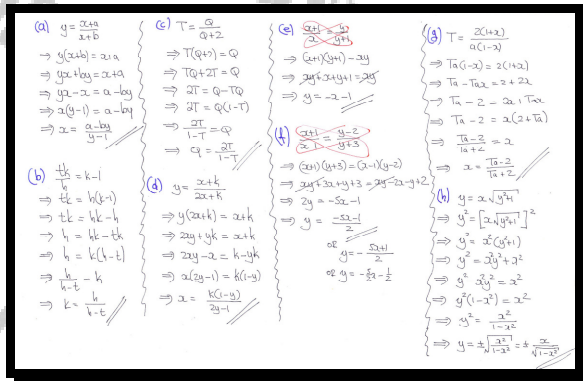 (a) y = x+a / x+b
⇒ y(x+b) = x+a
⇒ yx+by = x+a
⇒ yx-x = a-by
⇒ x(y-1) = a-by
⇒ x = a-by / y-1
(b) tk / h = k-1
⇒ tk = h(k-1)
⇒ tk = hk-h
⇒ h = hk-tk
⇒ h = k(h-t)
⇒ h / h-t = k
⇒ k = h / h-t
(c) T = Q / Q+2
⇒ T(Q+2) = Q
⇒ TQ+2T = Q
⇒ 2T = Q-TQ
⇒ 2T = Q(1-T)
⇒ 2T / 1-T = Q
⇒ Q = 2T / 1-T
(d) y = x+k / 2x+k
⇒ y(2x+k) = x+k
⇒ 2xy+yk = x+k
⇒ 2xy-x = k-yk
⇒ x(2y-1) = k(1-y)
⇒ x = k(1-y) / 2y-1
(e) x+1 / x = y / y+1
⇒ (x+1)(y+1) = xy
⇒ xy+x+y+1 = xy
⇒ y = -x-1
(f) x+1 / x-1 = y-2 / y+3
⇒ (x+1)(y+3) = (x-1)(y-2)
⇒ xy+3x+y+3 = xy-2x-y+2
⇒ 2y = -5x-1
⇒ y = -5x-1 / 2
or y = - 5x+1 / 2
or y = -5/2x - 1/2
(g) T = 2(1+x) / a(1-x)
⇒ Ta(1-x) = 2(1+x)
⇒ Ta-Tax = 2+2x
⇒ Ta-2 = 2x+Tax
⇒ Ta-2 = x(2+Ta)
⇒ Ta-2 / Ta+2 = x
⇒ x = Ta-2 / Ta+2
(h) y = x√y²+1
⇒ y² = [x√y²+1]²
⇒ y² = x²(y²+1)
⇒ y² = x²y²+x²
⇒ y² - x²y² = x²
⇒ y²(1-x²) = x²
⇒ y² = x² / 1-x²
⇒ y = ±√x² / 1-x² = ± x / √1-x²